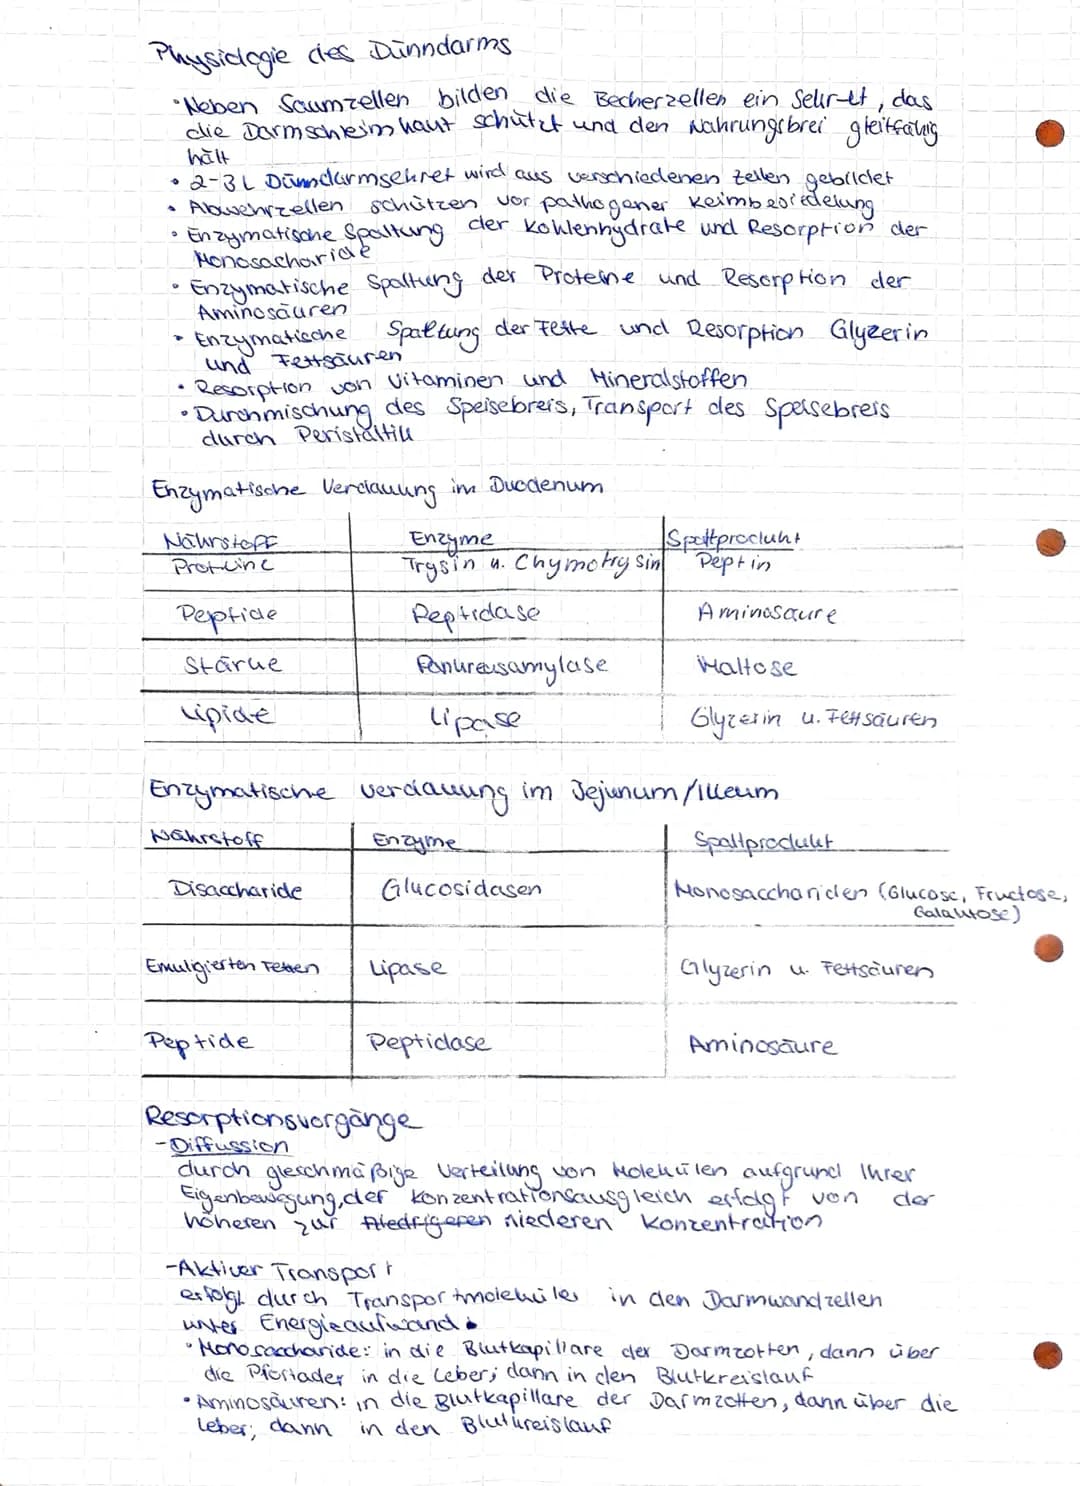 Physiologie des Dünndarms
• Neben Saumzellen bilden die Becherzellen ein Sekret, das
die Darmschleimhaut schützt und den Nahrungsbrei gleitfähig
hält
• 2-3L Dünndarmsekret wird aus verschiedenen Zellen gebildet
• Abwehrzellen schützen vor pathogener Keimbesiedelung
• Enzymatische Spaltung der Kohlenhydrate und Resorption der
Monosacharide
• Enzymatische Spaltung der Proteine und Resorption der
Aminosäuren
• Enzymatische Spaltung der Fette und Resorption Glyzerin
und Fettsäuren
• Resorption von Vitaminen und Mineralstoffen
• Durchmischung des Speisebreis, Transport des Speisebreis
durch Peristaltik
Enzymatische Verdauung im Duodenum
Nährstoff Enzyme Spaltprodukt
Proteine Trysin u. Chymotrysin Peptin
Peptide Peptidase Aminosäure
Stärke Pankreasamylase Maltose
Lipide Lipase Glyzerin u. Fettsäuren
Enzymatische Verdauung im Jejunum/Illeum
Nährstoff Enzyme Spaltprodukt
Disaccharide Glucosidasen Monosacchariden (Glucose, Fructose,
Galaktose)
Emulgierten Fetten Lipase Glyzerin u. Fettsäuren
Peptide Peptidase Aminosäure
Resorptionsvorgänge
-Diffussion
durch gleichmäßige Verteilung von Molekülen aufgrund Ihrer
Eigenbewegung, der Konzentrationsausgleich erfolgt von der
höheren zur niedrigeren niederen Konzentration
-Aktiver Transport
erfolgt durch Transportmoleküle in den Darmwandzellen
unter Energieaufwand.
• Monosaccharide: in die Blutkapillare der Darmzotten, dann über
die Pfortader in die Leber; dann in den Blutkreislauf
• Aminosäuren: in die Blutkapillare der Darmzotten, dann über die
Leber; dann in den Blutkreislauf